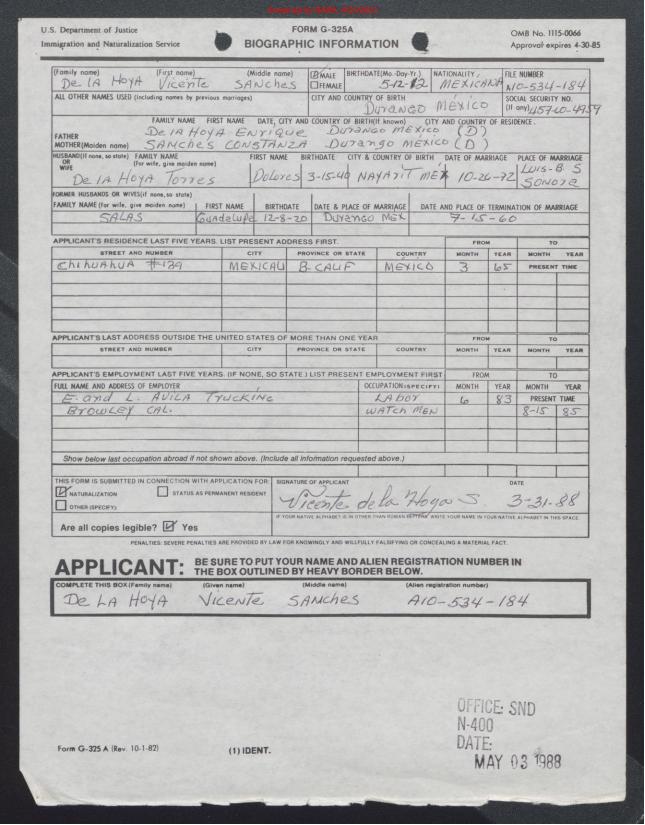 U.S. Department of Justice
Immigration and Naturalization Service
FORM G-325A
BIOGRAPHIC INFORMATION
OMB No. 1115-0066
Approval expires 4-30-85
(Family name) (First name) (Middle name) MALE FEMALE BIRTHDATE(Mo.-Day-Yr.) NATIONALITY FILE NUMBER
De LA HoyA Vicente SANches 5-12-12 MEXICANA A10-534-184
ALL OTHER NAMES USED (Including names by previous marriages) CITY AND COUNTRY OF BIRTH SOCIAL SECURITY NO. (If any)
Durango MEXICO
FAMILY NAME FIRST NAME DATE, CITY AND COUNTRY OF BIRTH(If known) CITY AND COUNTRY OF RESIDENCE.
FATHER De lA HoyA ENrique Durango MEXICO (D)
MOTHER(Maiden name) SANches CONSTANZA Durango MEXICO (D)
HUSBAND(If none, so state) OR WIFE FAMILY NAME (For wife, give maiden name) FIRST NAME BIRTHDATE CITY & COUNTRY OF BIRTH DATE OF MARRIAGE PLACE OF MARRIAGE
De lA HoyA Torres Dolores 3-15-40 NAYArit MEX 10-26-72 Luis-B S Sonora
FORMER HUSBANDS OR WIVES(if none, so state)
FAMILY NAME (For wife, give maiden name) FIRST NAME BIRTHDATE DATE & PLACE OF MARRIAGE DATE AND PLACE OF TERMINATION OF MARRIAGE
SALAS Guadalupe 12-8-20 Durango MEX 7-15-60
APPLICANT'S RESIDENCE LAST FIVE YEARS. LIST PRESENT ADDRESS FIRST. FROM TO
STREET AND NUMBER CITY PROVINCE OR STATE COUNTRY MONTH YEAR MONTH YEAR
chihuahua #139 MEXICALI B-CALIF MEXICO 3 65 PRESENT TIME
APPLICANT'S LAST ADDRESS OUTSIDE THE UNITED STATES OF MORE THAN ONE YEAR FROM TO
STREET AND NUMBER CITY PROVINCE OR STATE COUNTRY MONTH YEAR MONTH YEAR
APPLICANT'S EMPLOYMENT LAST FIVE YEARS. (IF NONE, SO STATE.) LIST PRESENT EMPLOYMENT FIRST FROM TO
FULL NAME AND ADDRESS OF EMPLOYER OCCUPATION(SPECIFY) MONTH YEAR MONTH YEAR
E. and L. AVILA Trucking LAbor 6 83 PRESENT TIME
Browley CAL. WATCH MEN 8-15 85
Show below last occupation abroad if not shown above. (Include all information requested above.)
THIS FORM IS SUBMITTED IN CONNECTION WITH APPLICATION FOR: SIGNATURE OF APPLICANT DATE
NATURALIZATION STATUS AS PERMANENT RESIDENT
OTHER (SPECIFY):
Vicente de la Hoya S. 3-31-88
IF YOUR NATIVE ALPHABET IS IN OTHER THAN ROMAN LETTERS, WRITE YOUR NAME IN YOUR NATIVE ALPHABET IN THIS SPACE
Are all copies legible? Yes
PENALTIES: SEVERE PENALTIES ARE PROVIDED BY LAW FOR KNOWINGLY AND WILLFULLY FALSIFYING OR CONCEALING A MATERIAL FACT.
APPLICANT: BE SURE TO PUT YOUR NAME AND ALIEN REGISTRATION NUMBER IN
THE BOX OUTLINED BY HEAVY BORDER BELOW.
COMPLETE THIS BOX (Family name) (Given name) (Middle name) (Alien registration number)
De LA HoyA Vicente SANches A10-534-184
OFFICE: SND
N-400
DATE:
MAY 03 1988
Form G-325 A (Rev. 10-1-82)
(1) IDENT.